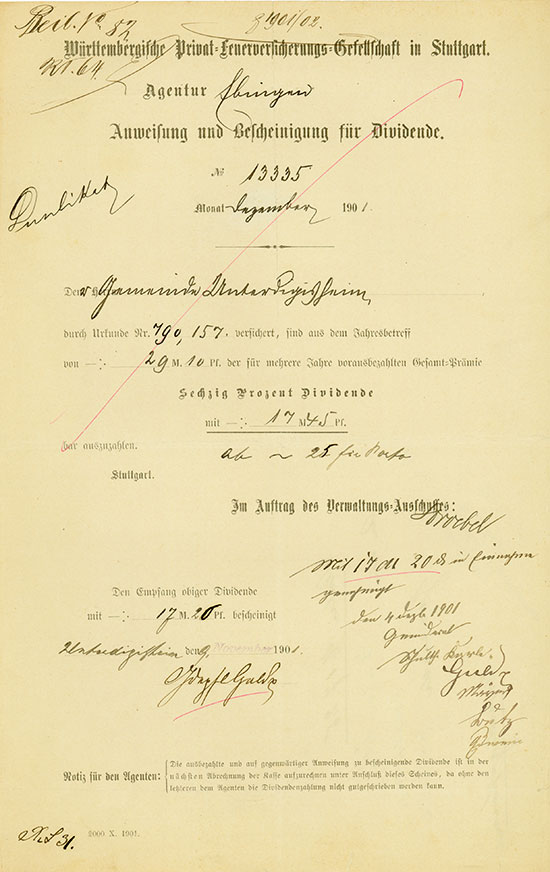 Beil. No 82
1901/02.
Württembergische Privat-Feuerversicherungs-Gesellschaft in Stuttgart.
64
Agentur Ebingen
Anweisung und Bescheinigung für Dividende.
№ 13335
Duplikat
Monat Dezember 1901.
Der Gemeinde Unterdigisheim
durch Urkunde Nr. 790,157. versichert, sind aus dem Jahresbetreff
von —:— 29 M. 10 Pf. der für mehrere Jahre vorausbezahlten Gesamt-Prämie
Sechzig Prozent Dividende
mit —:— 17 M. 45 Pf.
bar auszuzahlen.
ab ~ 25 für Porto
Stuttgart.
Im Auftrag des Verwaltungs-Ausschusses:
Mit 17 M 20 in Einnahme
genehmigt
Den Empfang obiger Dividende
mit —:— 17 M. 20 Pf. bescheinigt
den 4 Dezb 1901
Gemeinderat
Unterdigisheim den 9. November 1901.
Notiz für den Agenten:
Die ausbezahlte und auf gegenwärtiger Anweisung zu bescheinigende Dividende ist in der
nächsten Abrechnung der Kasse aufzurechnen unter Anschluß dieses Scheines, da ohne den
letzteren dem Agenten die Dividendenzahlung nicht gutgeschrieben werden kann.
31.
2000 X. 1901.